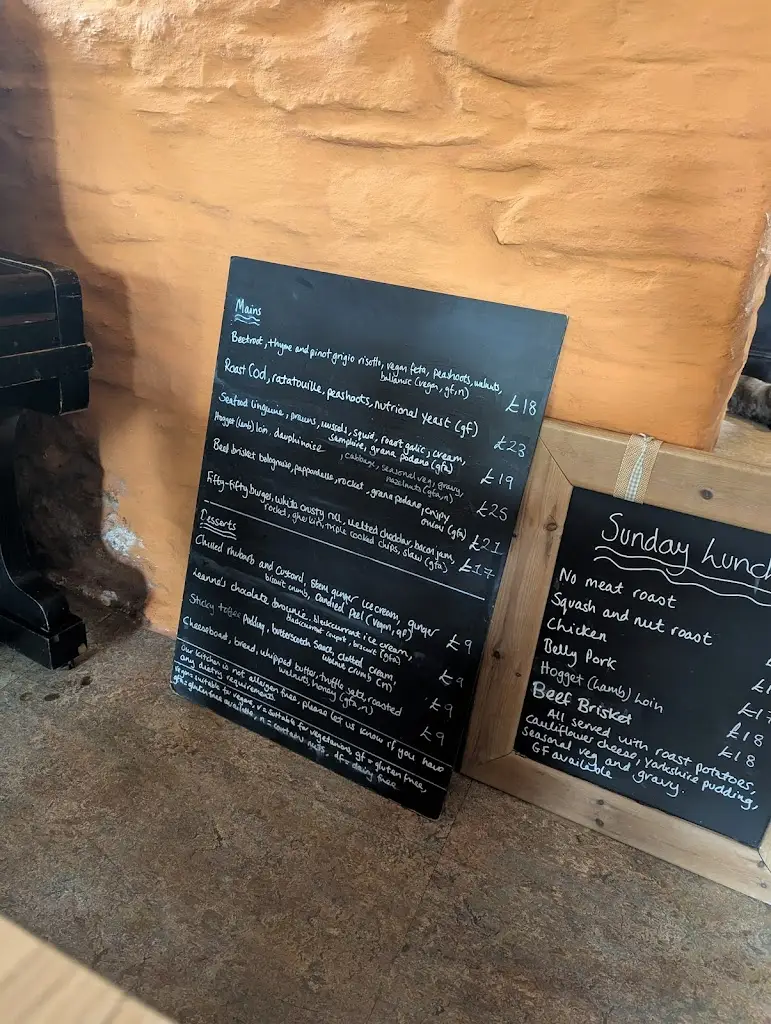 Mains
Beetroot, thyme and pinot grigio risotto, vegan feta, peashoots, walnuts,
balsamic (vegan, gf, n) £18
Roast Cod, ratatouille, peashoots, nutrional yeast (gf) £23
Seafood linguine, prawns, mussels, squid, roast garlic, cream,
samphire, grana padano (gfa) £19
Hogget (lamb) loin, dauphinoise, cabbage, seasonal veg, gravy,
hazelnuts (gfa, n) £25
Beef brisket bolognase, pappardelle, rocket, grana padano, crispy
onion (gfa) £21
Fifty-fifty burger, white crusty roll, melted cheddar, bacon jam,
rocket, gherkin, triple cooked chips, slaw (gfa) £17
Desserts
Chilled rhubarb and custard, stem ginger ice cream, ginger
biscuit crumb, candied peel (vegan, gf) £9
Leanne's chocolate brownie, blackcurrant ice cream,
blackcurrant, biscuit (gfa) £9
Sticky toffee pudding, butterscotch sauce, clotted cream,
walnut crumb (n) £9
Cheeseboard, bread, whipped butter, truffle, roasted
walnuts, honey (gfa, n) £9
Our kitchen is not allergen free, please let us know if you have
any dietry requirements.
vegan = suitable for vegans, v = suitable for vegetarians, gf = gluten free,
gfa = gluten free available, n = contains nuts, df = dairy free
Sunday Lunch
No meat roast
Squash and nut roast
Chicken
Belly Pork
Hogget (lamb) loin £18
Beef Brisket £18
All served with roast potatoes,
cauliflower cheese, Yorkshire pudding,
seasonal veg and gravy.
GF available